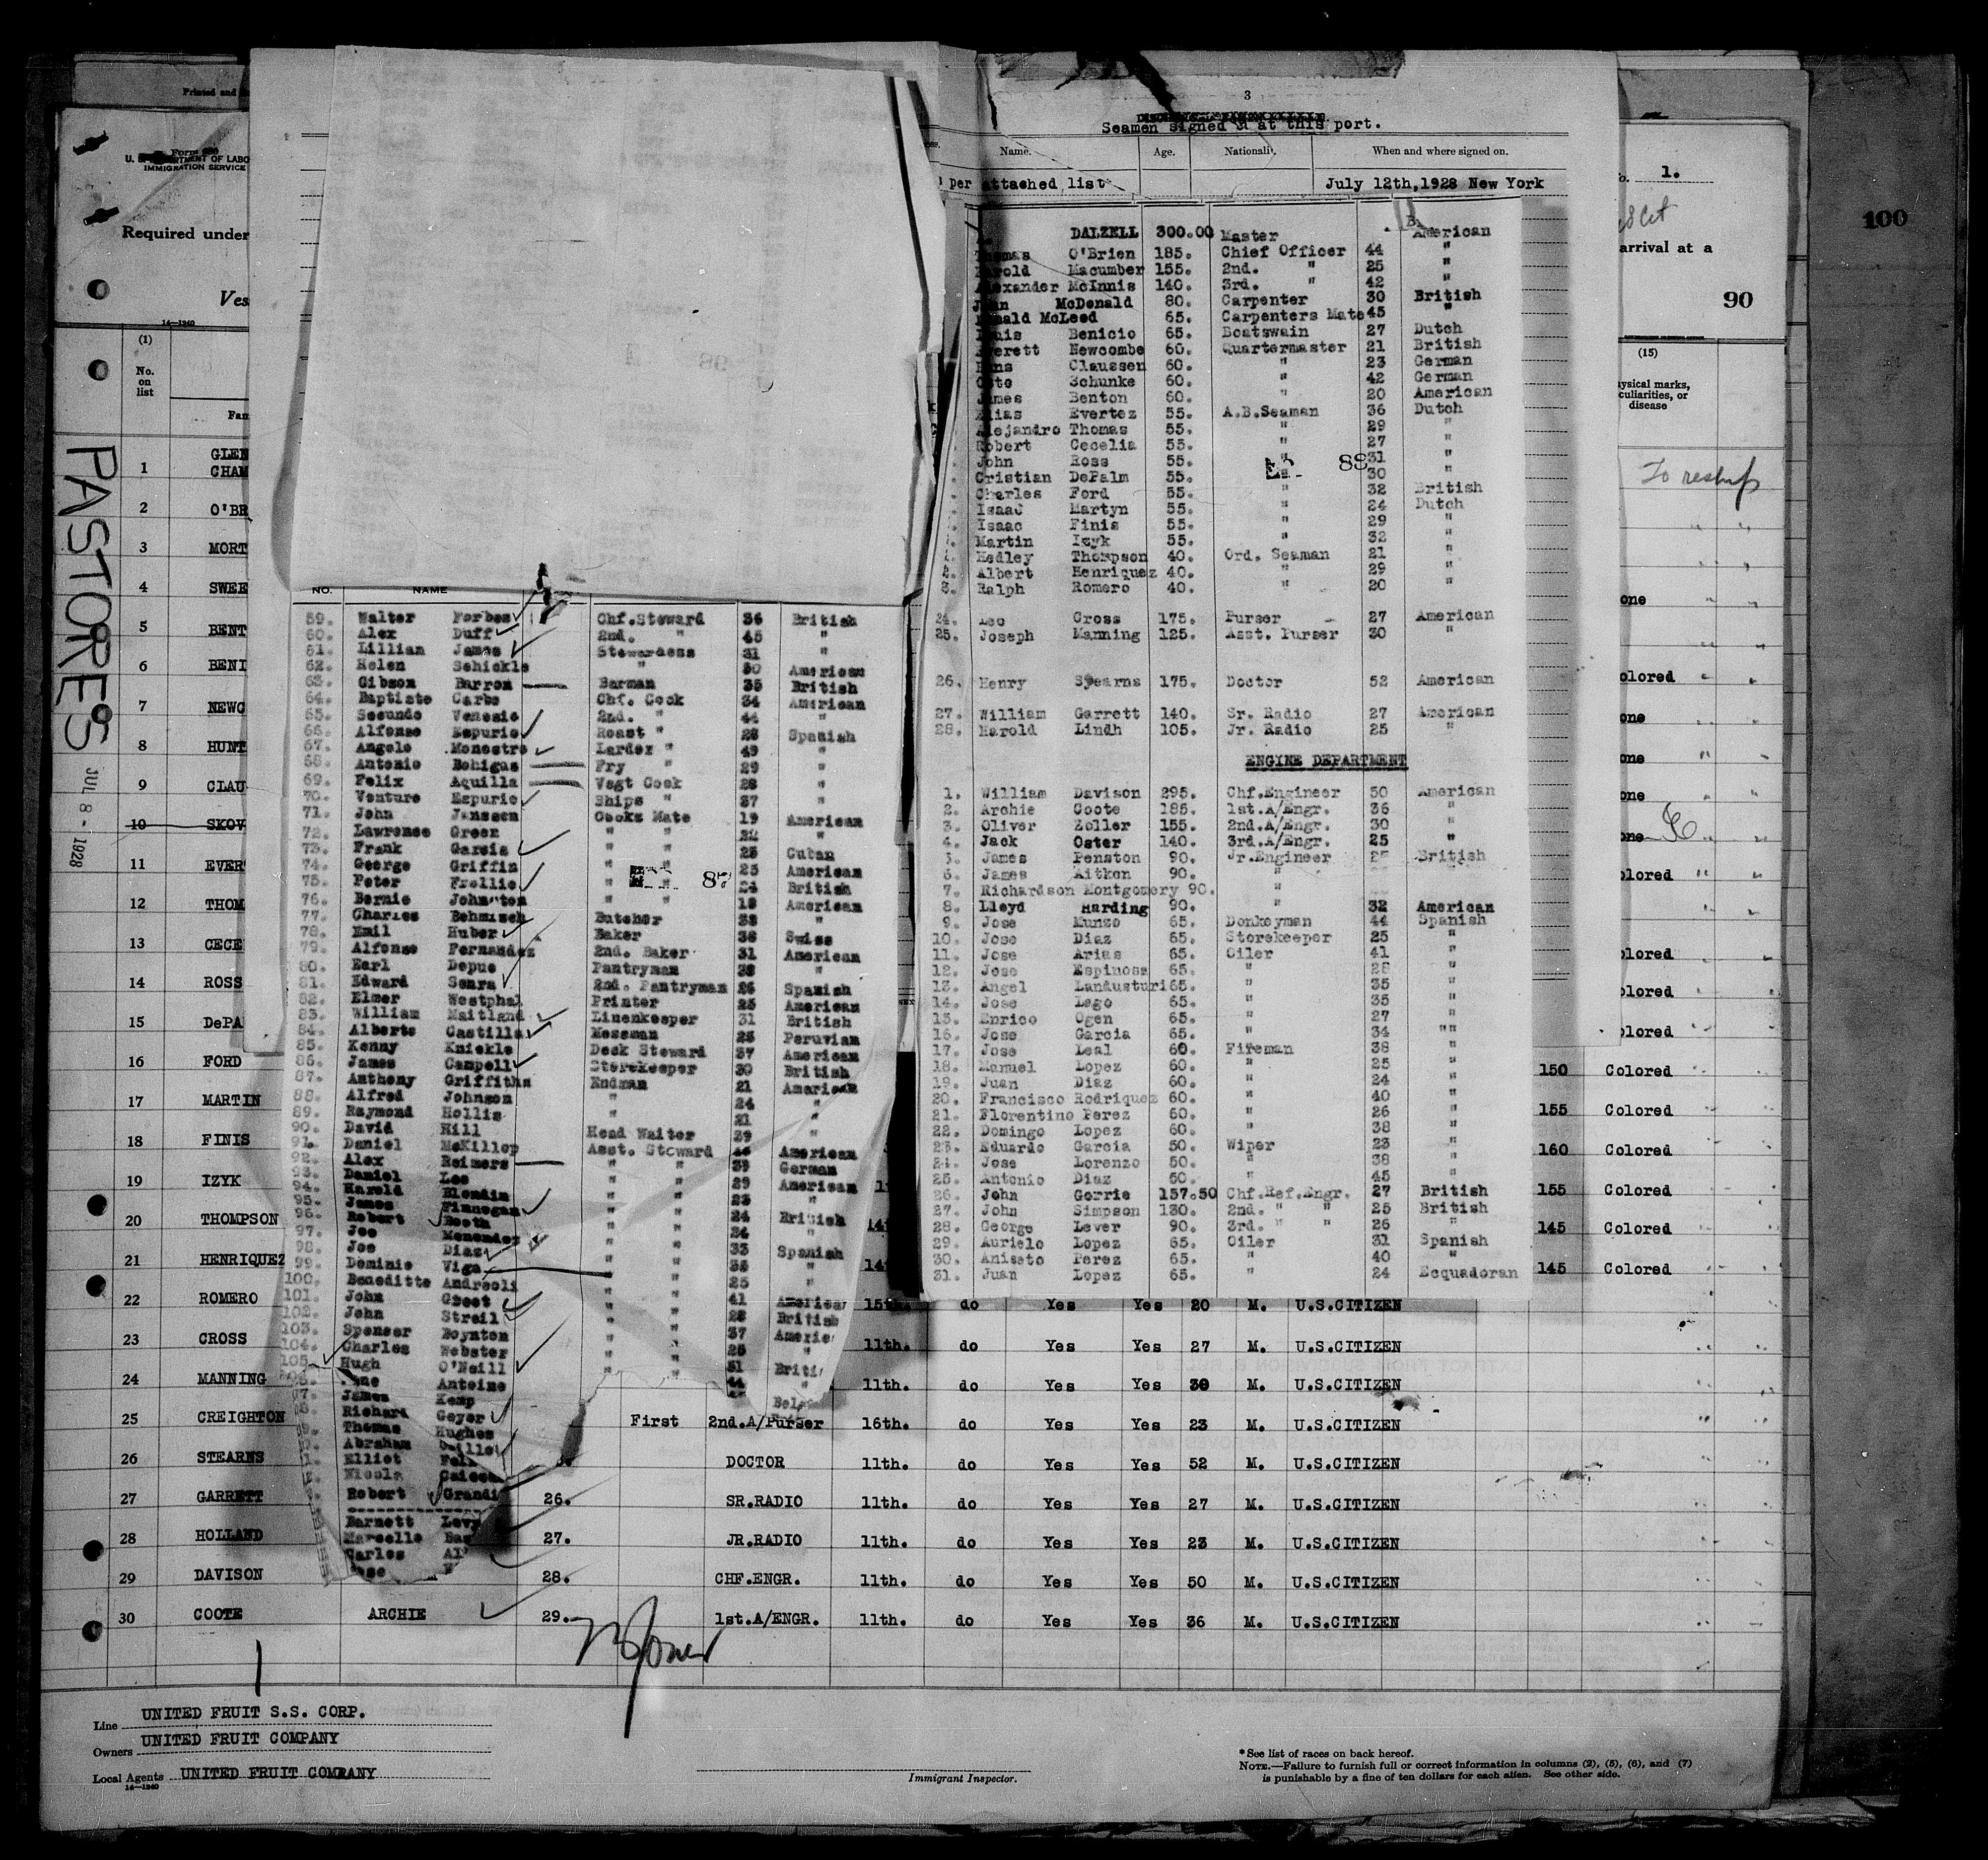 Printed and
Form 680
U. S. DEPARTMENT OF LABO
IMMIGRATION SERVICE
Required under
Ves
14—1240
(1)
No.
on
list
Fam
PASTORES
JUL 8 - 1928
1 GLEN
CHAM
2 O'BR
3 MORT
4 SWEE
5 BENT
6 BENI
7 NEWC
8 HUNT
9 CLAU
10 SKOV
11 EVER
12 THOM
13 CECE
14 ROSS
15 DePA
16 FORD
17 MARTIN
18 FINIS
19 IZYK
20 THOMPSON
21 HENRIQUEZ
22 ROMERO
23 CROSS
24 MANNING
25 CREIGHTON
26 STEARNS
27 GARRETT
28 HOLLAND
29 DAVISON
30 COOTE ARCHIE
NO. NAME
59. Walter Forbes Chf.Steward 36 British
60. Alex Duff 2nd. " 45 "
61. Lillian James Stewardess 31 "
62. Helen Schickle " 30 American
63. Gibson Barron Barman 35 British
64. Baptiste Carbe Chf. Cook 34 American
65. Secundo Venesio 2nd. " 44 "
66. Alfonso Espurio Roast " 28 Spanish
67. Angelo Monestro Larder " 49 "
68. Antonio Bohigas Fry " 29 "
69. Felix Aquilla Vegt Cook 28 "
70. Venture Espurio Ships " 37 "
71. John Janssen Cooks Mate 19 American
72. Lawrence Green " " "
73. Frank Garcia " " 25 Cuban
74. George Griffin " " 25 American
75. Peter Frellie " 87 24 British
76. Bernie Johnston " " 18 American
77. Charles Behmisch Butcher 38 "
78. Emil Huber Baker 38 Swiss
79. Alfonso Fernandez 2nd. Baker 31 American
80. Earl Depue Pantryman 38 "
81. Edward Senra 2nd. Pantryman 26 Spanish
82. Elmer Westphal Printer 25 American
83. William Maitland Linenkeeper 31 British
84. Alberto Castilla Messman 25 Peruvian
85. Kenny Knickle Deck Steward 37 American
86. James Campell Storekeeper 30 British
87. Anthony Griffiths Endman 21 American
88. Alfred Johnson " 24 "
89. Raymond Hollis " 21
90. David Hill Head Waiter 29 "
91. Daniel McKillop Asst. Steward American
92. Alex Reimers " " 39 German
93. Daniel Lee " " 29 American
94. Harold Blondin " " 23 "
95. James Finnegan " " 24 British
96. Robert Booth " " 24 "
97. Joe Menendez " " 33 Spanish
98. Joe Diaz " " 35 "
99. Dominic Viga " 25 "
100. Beneditto Andreoli " " 41 American
101. John Groet " " 28 British
102. John Streil " " 37 Americ
103. Spenser Boynton " " 25 "
104. Charles Webster " " 31 Briti
105. Hugh O'Neill " " 44 "
Antoine Belg
James Kemp
Richard Geyer
Thomas Hughes
Abraham
Elliot
Nicola
Robert Grandi
Barnett Levy
Marcelle Bas
Carlos Al
3
Seamen signed on at this port.
Name. Age. Nationality. When and where signed on.
per attached list July 12th,1928 New York
DALZELL 300.00 Master American
Thomas O'Brien 185. Chief Officer 44 "
Harold Macumber 155. 2nd. " 25 "
Alexander McInnis 140. 3rd. " 42 "
John McDonald 80. Carpenter 30 British
Donald McLeod 65. Carpenters Mate 45 "
Louis Benicio 65. Boatswain 27 Dutch
Everett Newcombe 60. Quartermaster 21 British
Hans Claussen 60. " 23 German
Otto Schunke 60. " 42 German
James Benton 60. " 20 American
Elias Evertez 55. A.B.Seaman 36 Dutch
Alejandro Thomas 55. " 29 "
Robert Cecelia 55. " 27 "
John Ross 55. 88 31 "
Cristian DePalm 55. " 30 "
Charles Ford 55. " 32 British
Isaac Martyn 55. " 24 Dutch
Isaac Finis 55. " 29 "
Martin Izyk 55. " 32 "
Hedley Thompson 40. Ord. Seaman 21 "
2. Albert Henriquez 40. " 29 "
3. Ralph Romero 40. " 20 "
24. Leo Cross 175. Purser 27 American
25. Joseph Manning 125. Asst. Purser 30 "
26. Henry Stearns 175. Doctor 52 American
27. William Garrett 140. Sr. Radio 27 American
28. Harold Lindh 105. Jr. Radio 25 "
ENGINE DEPARTMENT
1. William Davison 295. Chf.Engineer 50 American
2. Archie Coote 185. 1st.A/Engr. 36 "
3. Oliver Zoller 155. 2nd.A/Engr. 30 "
4. Jack Oster 140. 3rd.A/Engr. 25 "
5. James Penston 90. Jr.Engineer British
6. James Aitken 90. "
7. Richardson Montgomery 90. "
8. Lloyd Harding 90. " 32 American
9. Jose Munzo 65. Donkeyman 44 Spanish
10. Jose Diaz 65. Storekeeper 25 "
11. Jose Arias 65. Oiler 41 "
12. Jose Espinosa 65. " 28 "
13. Angel Landusturi 65. " 35 "
14. Jose Lago 65. " 35 "
15. Enrico Ogen 65. " 27 "
16. Jose Garcia 65. " 34 ""
17. Jose Leal 60. Fireman 38 "
18. Manuel Lopez 60. " 25 "
19. Juan Diaz 60. " 24 "
20. Francisco Rodriquez 60. " 40 "
21. Florentino Perez 60. " 26 "
22. Domingo Lopez 60. " 38 "
23. Eduardo Garcia 50. Wiper 23 "
24. Jose Lorenzo 50. " 38 "
25. Antonio Diaz 50. " 45 "
26. John Gorrie 157.50 Chf.Ref.Engr. 27 British
27. John Simpson 130. 2nd. " " 25 British
28. George Lever 90. 3rd. " " 26 "
29. Aurielo Lopez 65. Oiler 31 Spanish
30. Aniseto Perez 65. " 40 "
31. Juan Lopez 65. " 24 Ecquadoran
15th. do Yes Yes 20 M. U.S.CITIZEN
11th. do Yes Yes 27 M. U.S.CITIZEN
11th. do Yes Yes 30 M. U.S.CITIZEN
First 2nd.A/Purser 16th. do Yes Yes 23 M. U.S.CITIZEN
DOCTOR 11th. do Yes Yes 52 M. U.S.CITIZEN
26. SR.RADIO 11th. do Yes Yes 27 M. U.S.CITIZEN
27. JR.RADIO 11th. do Yes Yes 23 M. U.S.CITIZEN
28. CHF.ENGR. 11th. do Yes Yes 50 M. U.S.CITIZEN
29. 1st.A/ENGR. 11th. do Yes Yes 36 M. U.S.CITIZEN
1.
arrival at a
100
90
(15)
ysical marks,
culiarities, or
disease
To reship
one
olored
one
one
one
one
olored
olored
olored
olored
150 Colored
155 Colored
160 Colored
155 Colored
145 Colored
145 Colored
Line UNITED FRUIT S.S. CORP.
Owners UNITED FRUIT COMPANY
Local Agents UNITED FRUIT COMPANY
14—1240
Immigrant Inspector.
*See list of races on back hereof.
NOTE.—Failure to furnish full or correct information in columns (2), (5), (6), and (7)
is punishable by a fine of ten dollars for each alien. See other side.